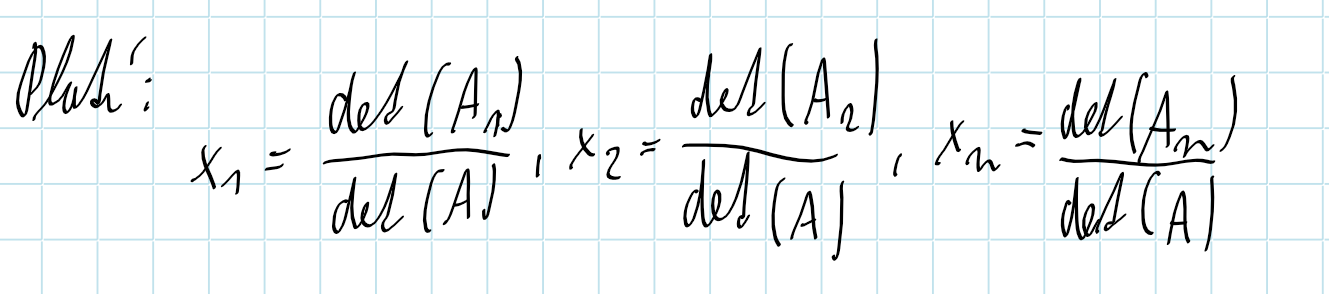 Platí:
x₁ = det(A₁)/det(A), x₂ = det(A₂)/det(A), xₙ = det(Aₙ)/det(A)